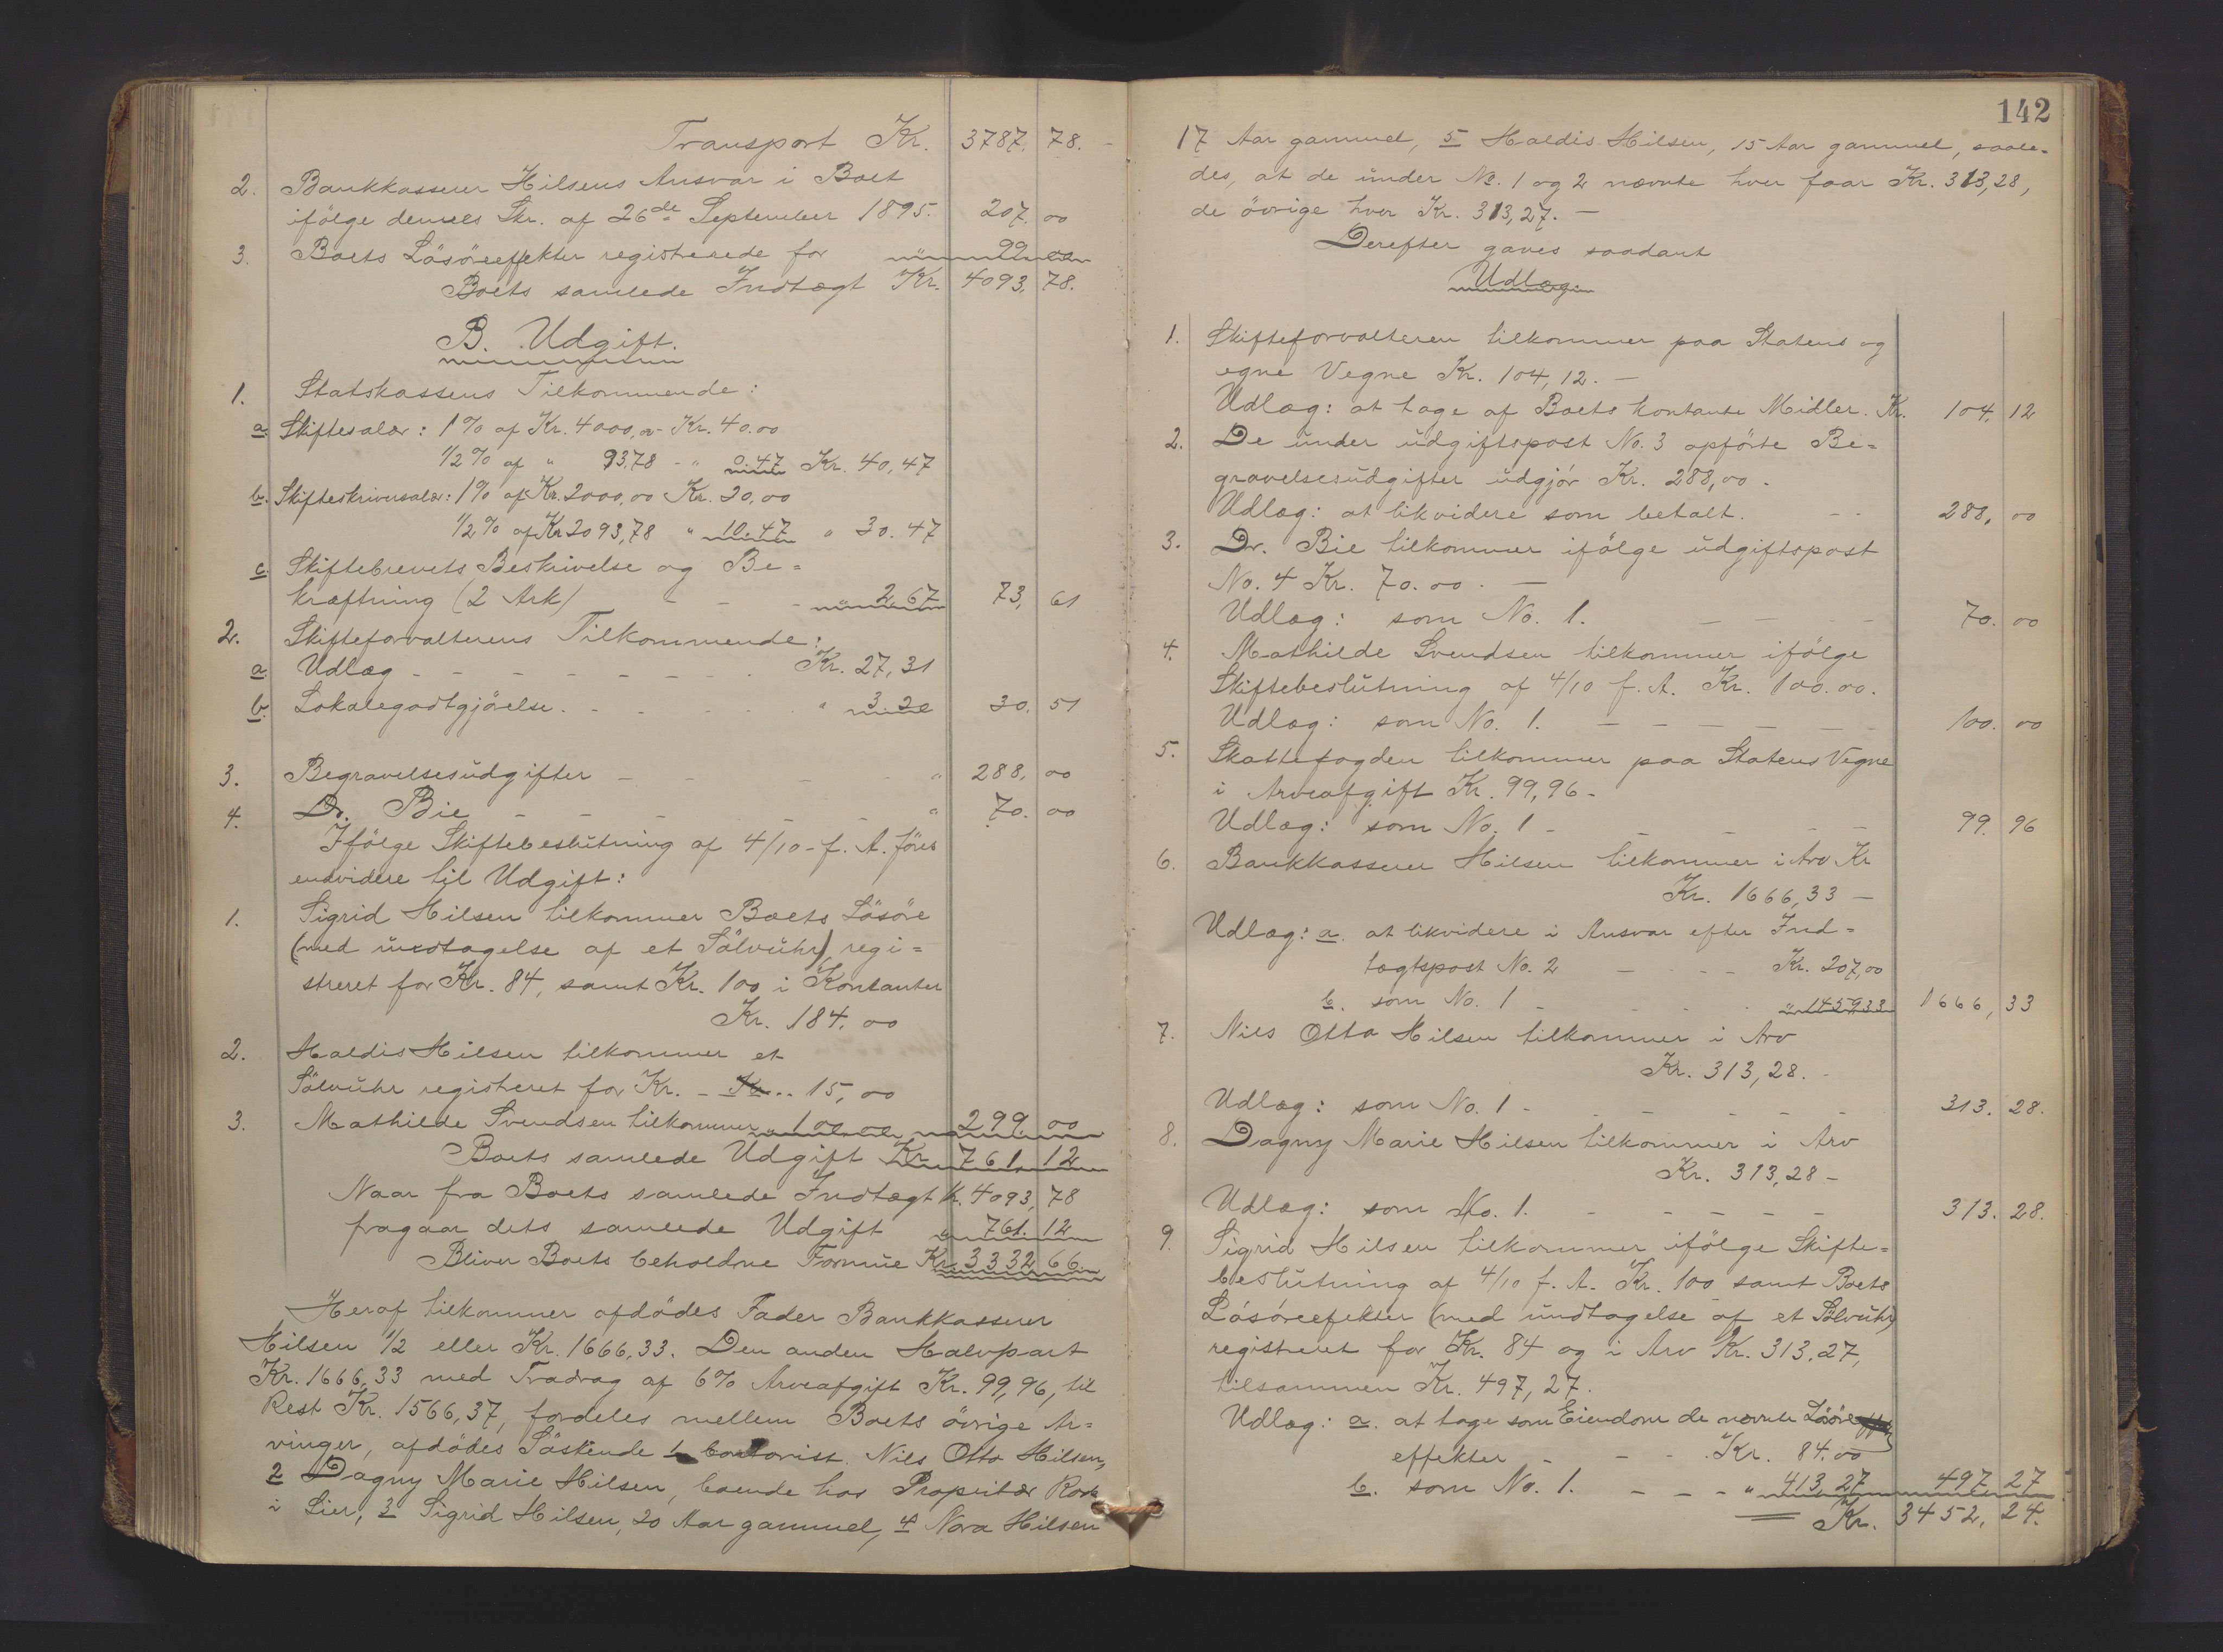 Transport Kr. 3787. 78.
2. Bankkasserer Hilsens Ansvar i Boet
ifölge dennes Skr. af 26de September 1895. 207. 00
3. Boets Lösöreeffekter registrerede for " 99 00
Boets samlede Indtægt Kr. 4093. 78.
B. Udgift.
1. Statskassens Tilkommende:
a. Skiftesalær: 1% af Kr. 4000,00 Kr. 40.00
1/2% af " 93.78 - " 0.47 Kr. 40,47
b. Skifteskriversalær: 1% af Kr. 2000,00 Kr. 20,00
1/2% af Kr 2093,78 " 10.47 " 30.47
c. Skiftebrevets Beskrivelse og Be=
kræftning (2 Ark) - - - " 2,67 73, 61
2. Skifteforvalterens Tilkommende:
a. Udlæg - - - - - - - - Kr. 27,31
b. Lokalegodtgjörelse. - - - - - " 3.20 30. 51
3. Begravelsesudgifter - - - - " 288, 00
4. Dr. Bie - - - - - - " 70. 00
Ifölge Skiftebeslutning af 4/10 - f. A. föres
endvidere til Udgift:
1. Sigrid Hilsen tilkommer Boets Lösöre
(med undtagelse af et Sölvuhr) regi=
streret for Kr. 84, samt Kr. 100 i Kontanter
Kr. 184. 00
2. Haldis Hilsen tilkommer et
Sölvuhr registreret for Kr. - Kr. .. 15, 00
3. Mathilde Svendsen tilkommer " 100 00 299. 00
Boets samlede Udgift Kr. 761. 12
Naar fra Boets samlede Indtægt Kr. 4093, 78
fragaar dets samlede Udgift " 761. 12
Bliver Boets beholdne Formue Kr. 3332 66.
Heraf tilkommer afdödes Fader Bankkasserer
Hilsen 1/2 eller Kr. 1666,33. Den anden Halvpart
Kr. 1666,33 med Fradrag af 6% Arveafgift Kr. 99,96, til
Rest Kr. 1566,37, fordeles mellem Boets övrige Ar=
vinger, afdödes Söskende 1 Contorist Nils Otto Hilsen,
2 Dagny Marie Hilsen, boende hos Proprietær
i Lier, 3 Sigrid Hilsen, 20 Aar gammel, 4 Nora Hilsen
142
17 Aar gammel, 5 Haldis Hilsen, 15 Aar gammel, saale=
des, at de under No. 1 og 2 nævnte hver faar Kr. 313,28,
de övrige hver Kr. 313,27. -
Derefter gaves saadant
Udlæg
1. Skifteforvalteren tilkommer paa Statens og
egne Vegne Kr. 104,12. -
Udlæg: at tage af Boets kontante Midler. Kr. 104, 12
2. De under udgiftspost No. 3 opförte Be=
gravelsesudgifter udgjör Kr. 288,00.
Udlæg: at likvidere som betalt. - - 288, 00
3. Dr. Bie tilkommer ifölge udgiftspost
No. 4 Kr. 70.00. -
Udlæg: som No. 1. - - - - 70. 00
4. Mathilde Svendsen tilkommer ifölge
Skiftebeslutning af 4/10 f. A. Kr. 100.00.
Udlæg: som No. 1. - - - - - - 100. 00
5. Skattefogden tilkommer paa Statens Vegne
i Arveafgift Kr. 99,96 -
Udlæg: som No. 1 - - - - - 99. 96
6. Bankkasserer Hilsen tilkommer i Arv Kr
Kr. 1666,33 -
Udlæg: a. at likvidere i Ansvar efter Ind=
tægtspost No. 2 - - - - Kr. 207,00
b. som No. 1 - - - - " 1459 33 1666, 33
7. Nils Otto Hilsen tilkommer i Arv
Kr. 313,28. -
Udlæg: som No. 1 - - - - - - 313. 28.
8. Dagny Marie Hilsen tilkommer i Arv
Kr. 313,28 -
Udlæg: som No. 1. - - - - - 313. 28.
9. Sigrid Hilsen tilkommer ifölge Skifte=
beslutning af 4/10 f. A. Kr. 100 samt Boets
Lösöreefekter (med undtagelse af et Sölvuhr)
registreret for Kr. 84 og i Arv Kr. 313.27,
tilsammen Kr. 497,27.
Udlæg: a. at tage som Eiendom de nævnte Lösöre
effekter - - - Kr. 84.00
b. som No. 1. - - - " 413.27 497 27
Kr. 3452, 24.